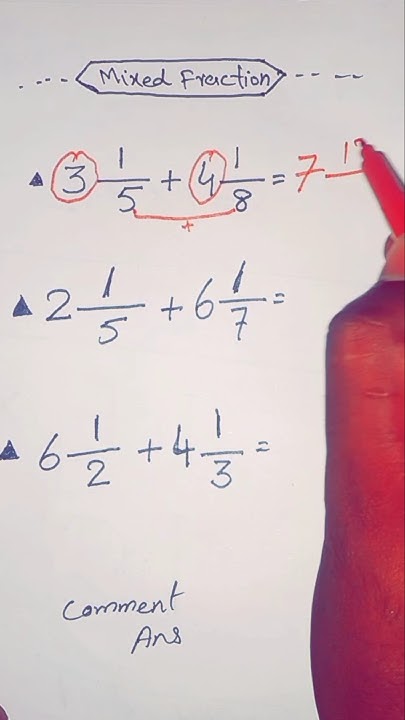 Mixed Fraction
3 1/5 + 4 1/8 = 7 1
2 1/5 + 6 1/7 =
6 1/2 + 4 1/3 =
Comment
Ans